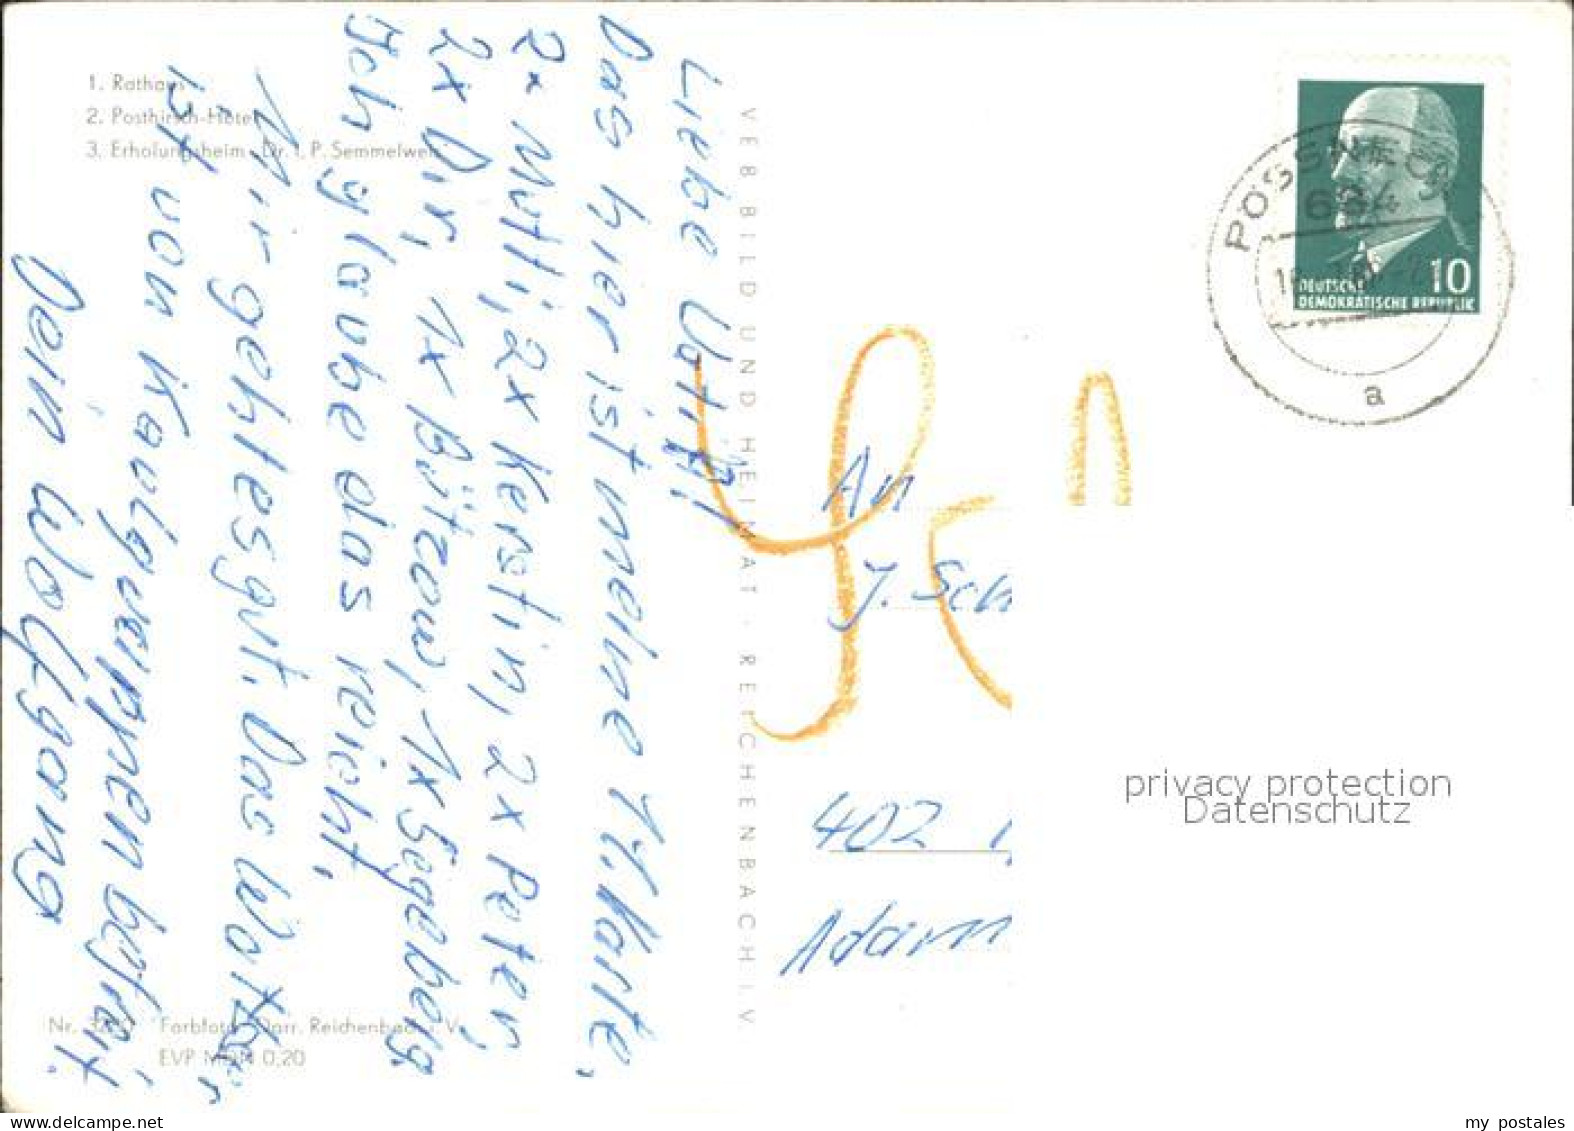 1. Rathaus
2. Posthirsch-Hotel
3. Erholungsheim „Dr. I. P. Semmelweis"
Liebe Vati!
Das hier ist meine 11. Karte,
2x Mutti, 2x Kerstin, 2x Peter,
2x Dir, 1x Bützow, 1x Segeberg.
Ich glaube das reicht.
Mir geht es gut. Das Wetter
ist von
Dein Wolfgang
Farbfoto: Darr. Reichenbach i. V.
EVP MDN 0,20
VEB BILD UND HEIMAT · REICHENBACH I.V
PÖSSNECK
684
a
10
DEUTSCHE
DEMOKRATISCHE REPUBLIK
An
J. Sch
402
Adam
privacy protection
Datenschutz
my postales